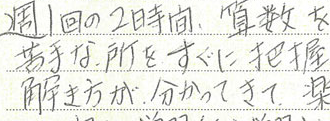 週1回の2時間、算数を
苦手な所をすぐに把握
解き方が分かってきて、楽